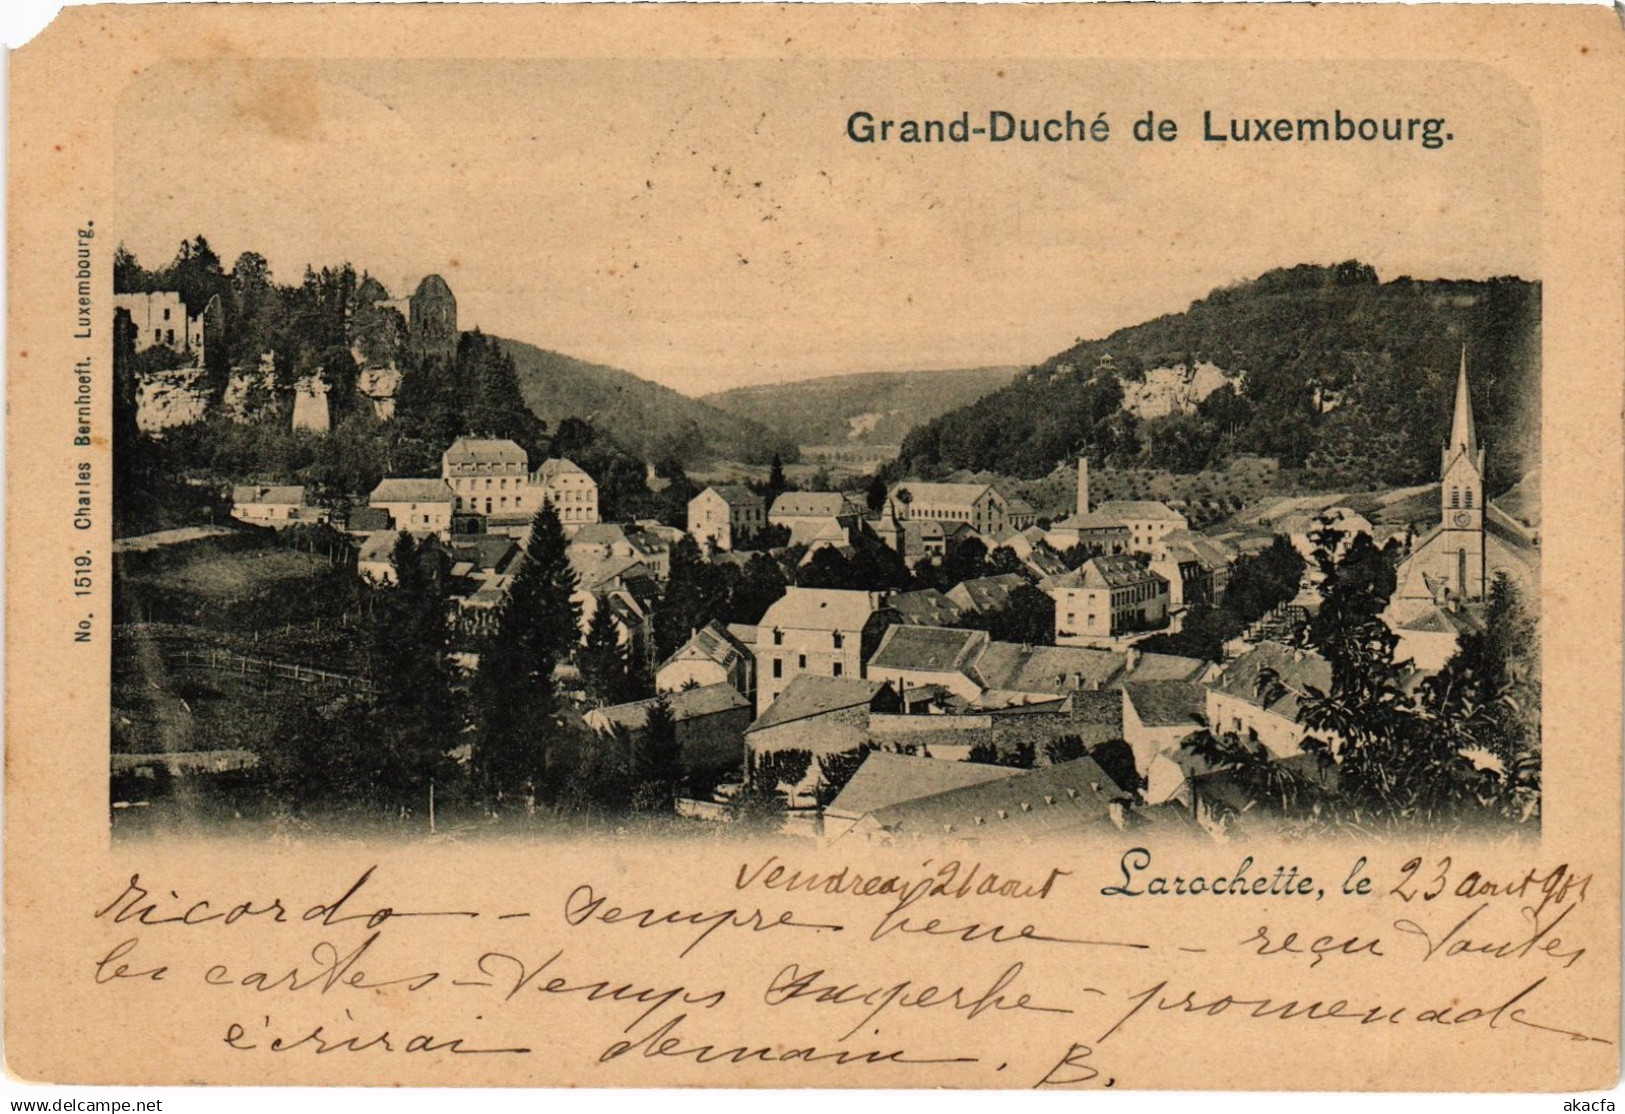 Grand-Duché de Luxembourg.
No. 1519. Charles Bernhoeft. Luxembourg.
Vendredi 21 aout
Larochette, le 23 aout 901
Ricordo - Sempre bene - reçu toutes
les cartes - Temps Superbe - promenade
écrirai demain. B.
delcampe.net
akacfa